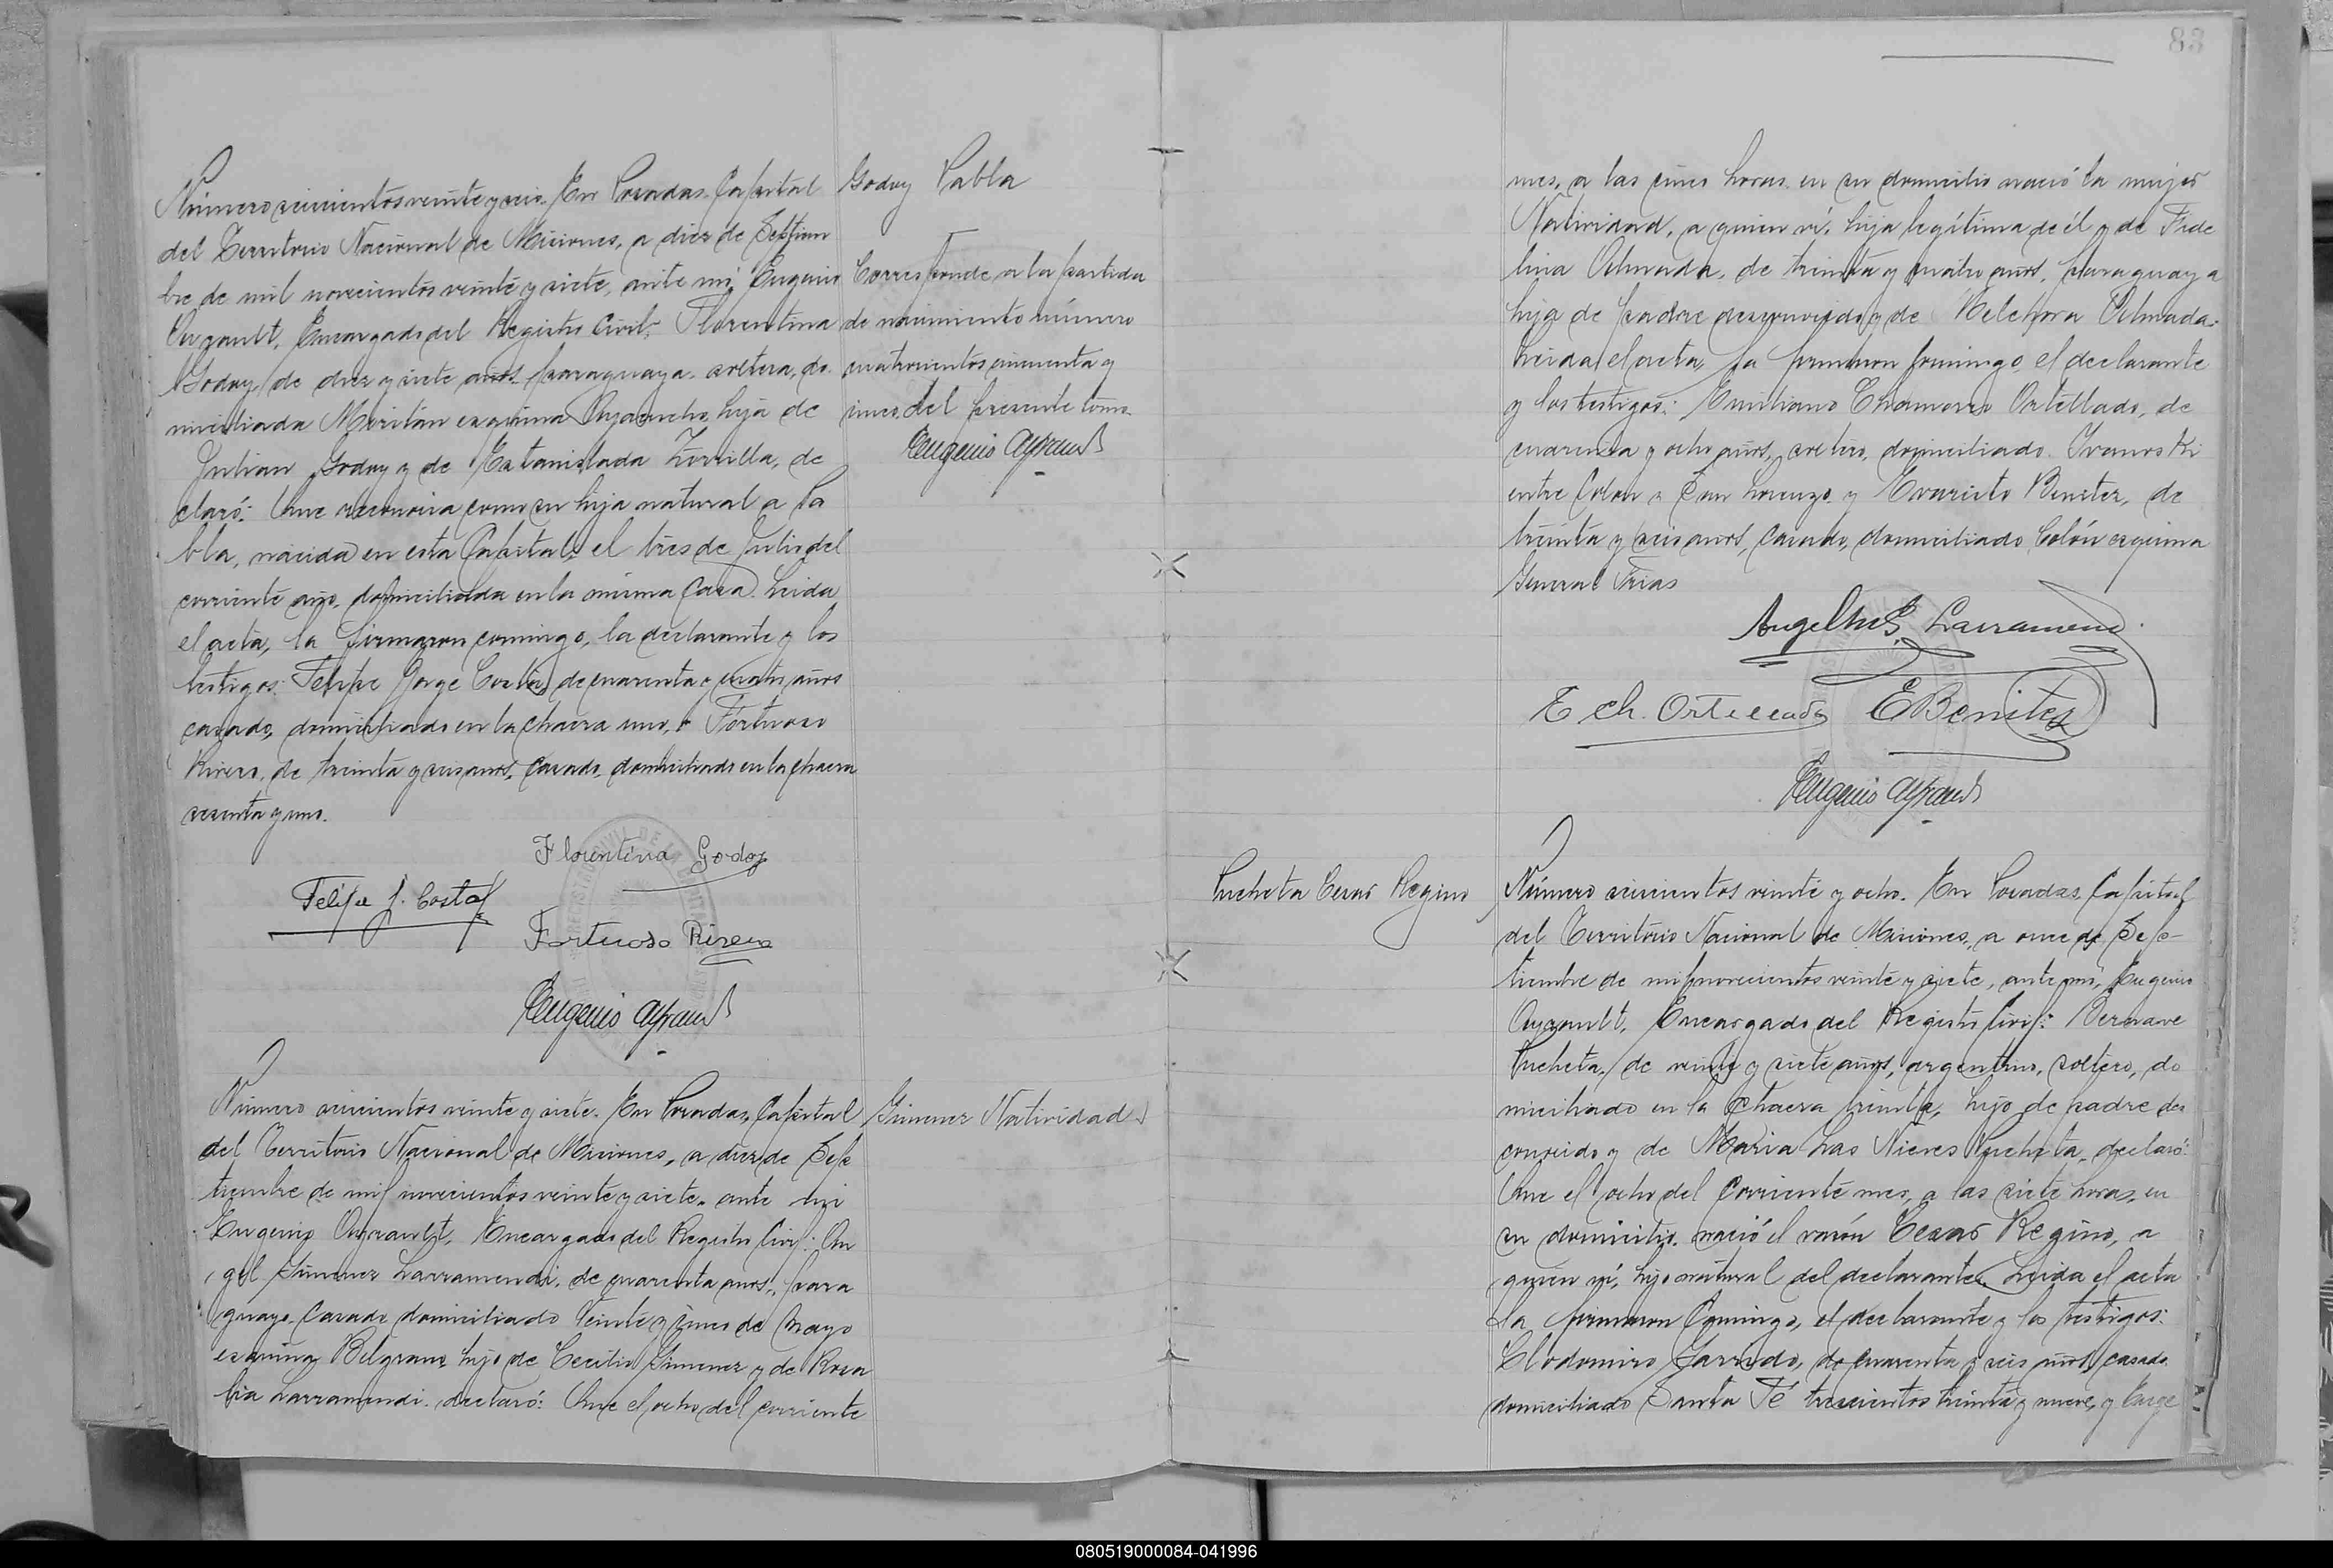 83
Número seiscientos veinte y seis. En Posadas, Capital
del Territorio Nacional de Misiones, a diez de Septiem
bre de mil novecientos veinte y siete, ante mí, Eugenio
Ayrault, Encargado del Registro Civil: Florentina
Godoy, de diez y siete años, paraguaya, soltera, do
miciliada Meritán esquina Ayacucho, hija de
Julian Godoy y de Estanislada Zorrilla, de
claró: Que reconocía como su hija natural a Pa
bla, nacida en esta Capital, el tres de Julio del
corriente año, domiciliada en la misma casa. Leida
el acta, la firmaron conmigo, la declarante y los
testigos: Felipe Jorge Costa, de cuarenta y cuatro años
casado, domiciliado en la chacra uno, y Fortuoso
Rivero, de treinta y seis años, casado, domiciliado en la chacra
sesenta y uno.
Godoy Pabla
Corresponde a la partida
de nacimiento número
cuatrocientos cincuenta y
cinco del presente tomo.
Eugenio Ayrault
Florentina Godoy
Felipe J. Costa
Fortuoso Rivero
Eugenio Ayrault
Número seiscientos veinte y siete. En Posadas, Capital
del Territorio Nacional de Misiones, a diez de Sep
tiembre de mil novecientos veinte y siete, ante mi
Eugenio Ayrault, Encargado del Registro Civil: An
gel Jimenez Larramendi, de cuarenta años, para
guayo, casado domiciliado Veinte y cinco de Mayo
esquina Belgrano, hijo de Cecilio Jimenez y de Rosa
lia Larramendi, declaró: Que el ocho del corriente
Gimenez Natividad
mes, a las cinco horas, en su domicilio nació la mujer
Natividad, a quien ví, hija legítima de él y de Fide
lina Almada, de treinta y cuatro años, paraguaya
hija de padre desconocido y de Melchora Almada.
Leida el acta, la firmaron conmigo, el declarante
y los testigos: Emiliano Chamorro Ortellado, de
cuarenta y ocho años, soltero, domiciliado Ivanoski
entre Colon y San Lorenzo, y Evaristo Benitez, de
treinta y seis años, casado, domiciliado Colón esquina
General Frias
Angel Larramendi
E Ch. Ortellado E Benitez
Eugenio Ayrault
Pucheta Cesar Regino
Número seiscientos veinte y ocho. En Posadas, Capital
del Territorio Nacional de Misiones, a once de Sep-
tiembre de mil novecientos veinte y siete, ante mí, Eugenio
Ayrault, Encargado del Registro Civil: Bernave
Pucheta, de veinte y siete años, argentino, soltero, do
miciliado en la Chacra treinta, hijo de padre des
conocido y de Maria Las Nieves Pucheta, declaró:
Que el ocho del corriente mes, a las siete horas, en
su domicilio, nació el varón Cesar Regino, a
quien ví, hijo natural del declarante. Leida el acta
la firmaron Conmigo, el declarante y los testigos:
Clodomiro Garrido, de cuarenta y seis años, casado
domiciliado Santa Fé trescientos treinta y nueve, y Jorge
080519000084-041996